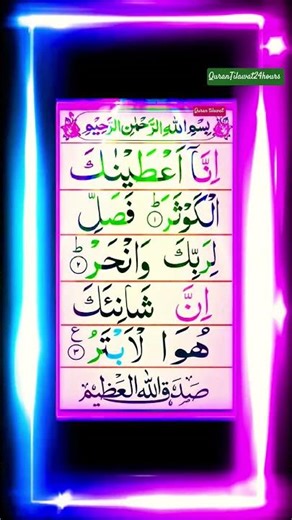 QuranTilawat24hours
Quran tilawat
بِسْمِ اللهِ الرَّحْمٰنِ الرَّحِيْمِ
اِنَّاۤ اَعْطَيْنٰكَ
الْكَوْثَرَ ؕ﴿۱﴾ فَصَلِّ
لِرَبِّكَ وَانْحَرْ ؕ﴿۲﴾
اِنَّ شَانِئَكَ
هُوَا لْاَبْتَرُ ﴿۳﴾ ع
صَدَقَ اللهُ الْعَظِيْم